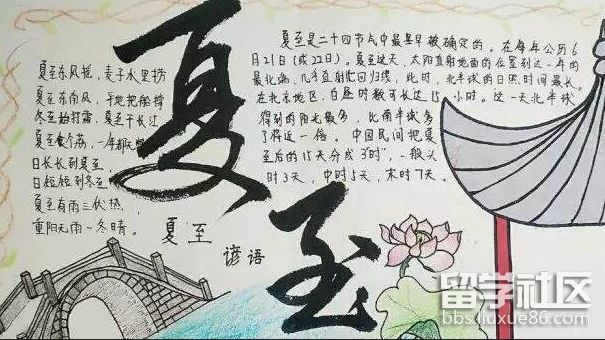 夏至东风摇，麦子水里捞
夏至东南风，平地把船撑
冬至始打霜，夏至干长江
夏至食个荔，一年都无弊
日长长到夏至，
日短短到冬至
夏至有雨三伏热，
重阳无雨一冬晴。
夏至
谚语
夏至
夏至是二十四节气中最早被确定的。在每年公历6
月21日(或22日)。夏至这天，太阳直射地面的位置到达一年的
最北端，几乎直射北回归线，此时，北半球的日照时间最长。
在北京地区，白昼时数可长达15小时。这一天北半球
得到的阳光最多，比南半球多
了将近一倍。中国民间把夏
至后的15天分成3"时"，一般头
时3天，中时5天，末时7天。
留学社区
bbs.liuxue86.com